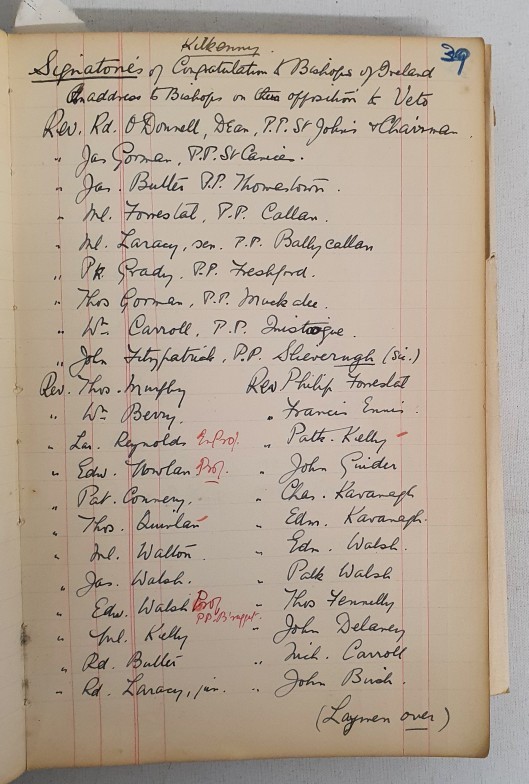 Kilkenny.
39
Signatories of Congratulation to Bishops of Ireland
An address to Bishops on their opposition to Veto
Rev. Rd. O'Donnell, Dean, P.P. St John's & Chairman
" Jas Gorman, P.P. St Canice.
" Jas. Butler P.P. Thomastown.
" Ml. Forrestal, P.P. Callan.
" Ml. Laracy, sen. P.P. Ballycallan
" Pk Grady. P.P. Freshford.
" Thos Gorman, P.P. Muckalee.
" Wm Carroll, P.P. Inistioge.
" John Fitzpatrick, P.P.Slieverugh (Sic.)
Rev. Thos. Murphy Rev Philip Forrestal
" Wm Berry. " Francis Ennis.
" Lau. Reynolds Ex Prof. " Patk. Kelly
" Edw. Nowlan Prof. " John Grider
" Pat. Connery. " Chas. Kavanagh
" Thos. Quinlan " Edm. Kavanagh.
" Ml. Walton. " Edm. Walsh.
" Jas. Walsh. " Patk Walsh
" Edw. Walsh Prof P.P. " Thos Fennelly
" Ml. Kelly " John Delaney
" Rd. Butler " Nich. Carroll
" Rd. Laracy, jun. " John Birch.
(Laymen over)